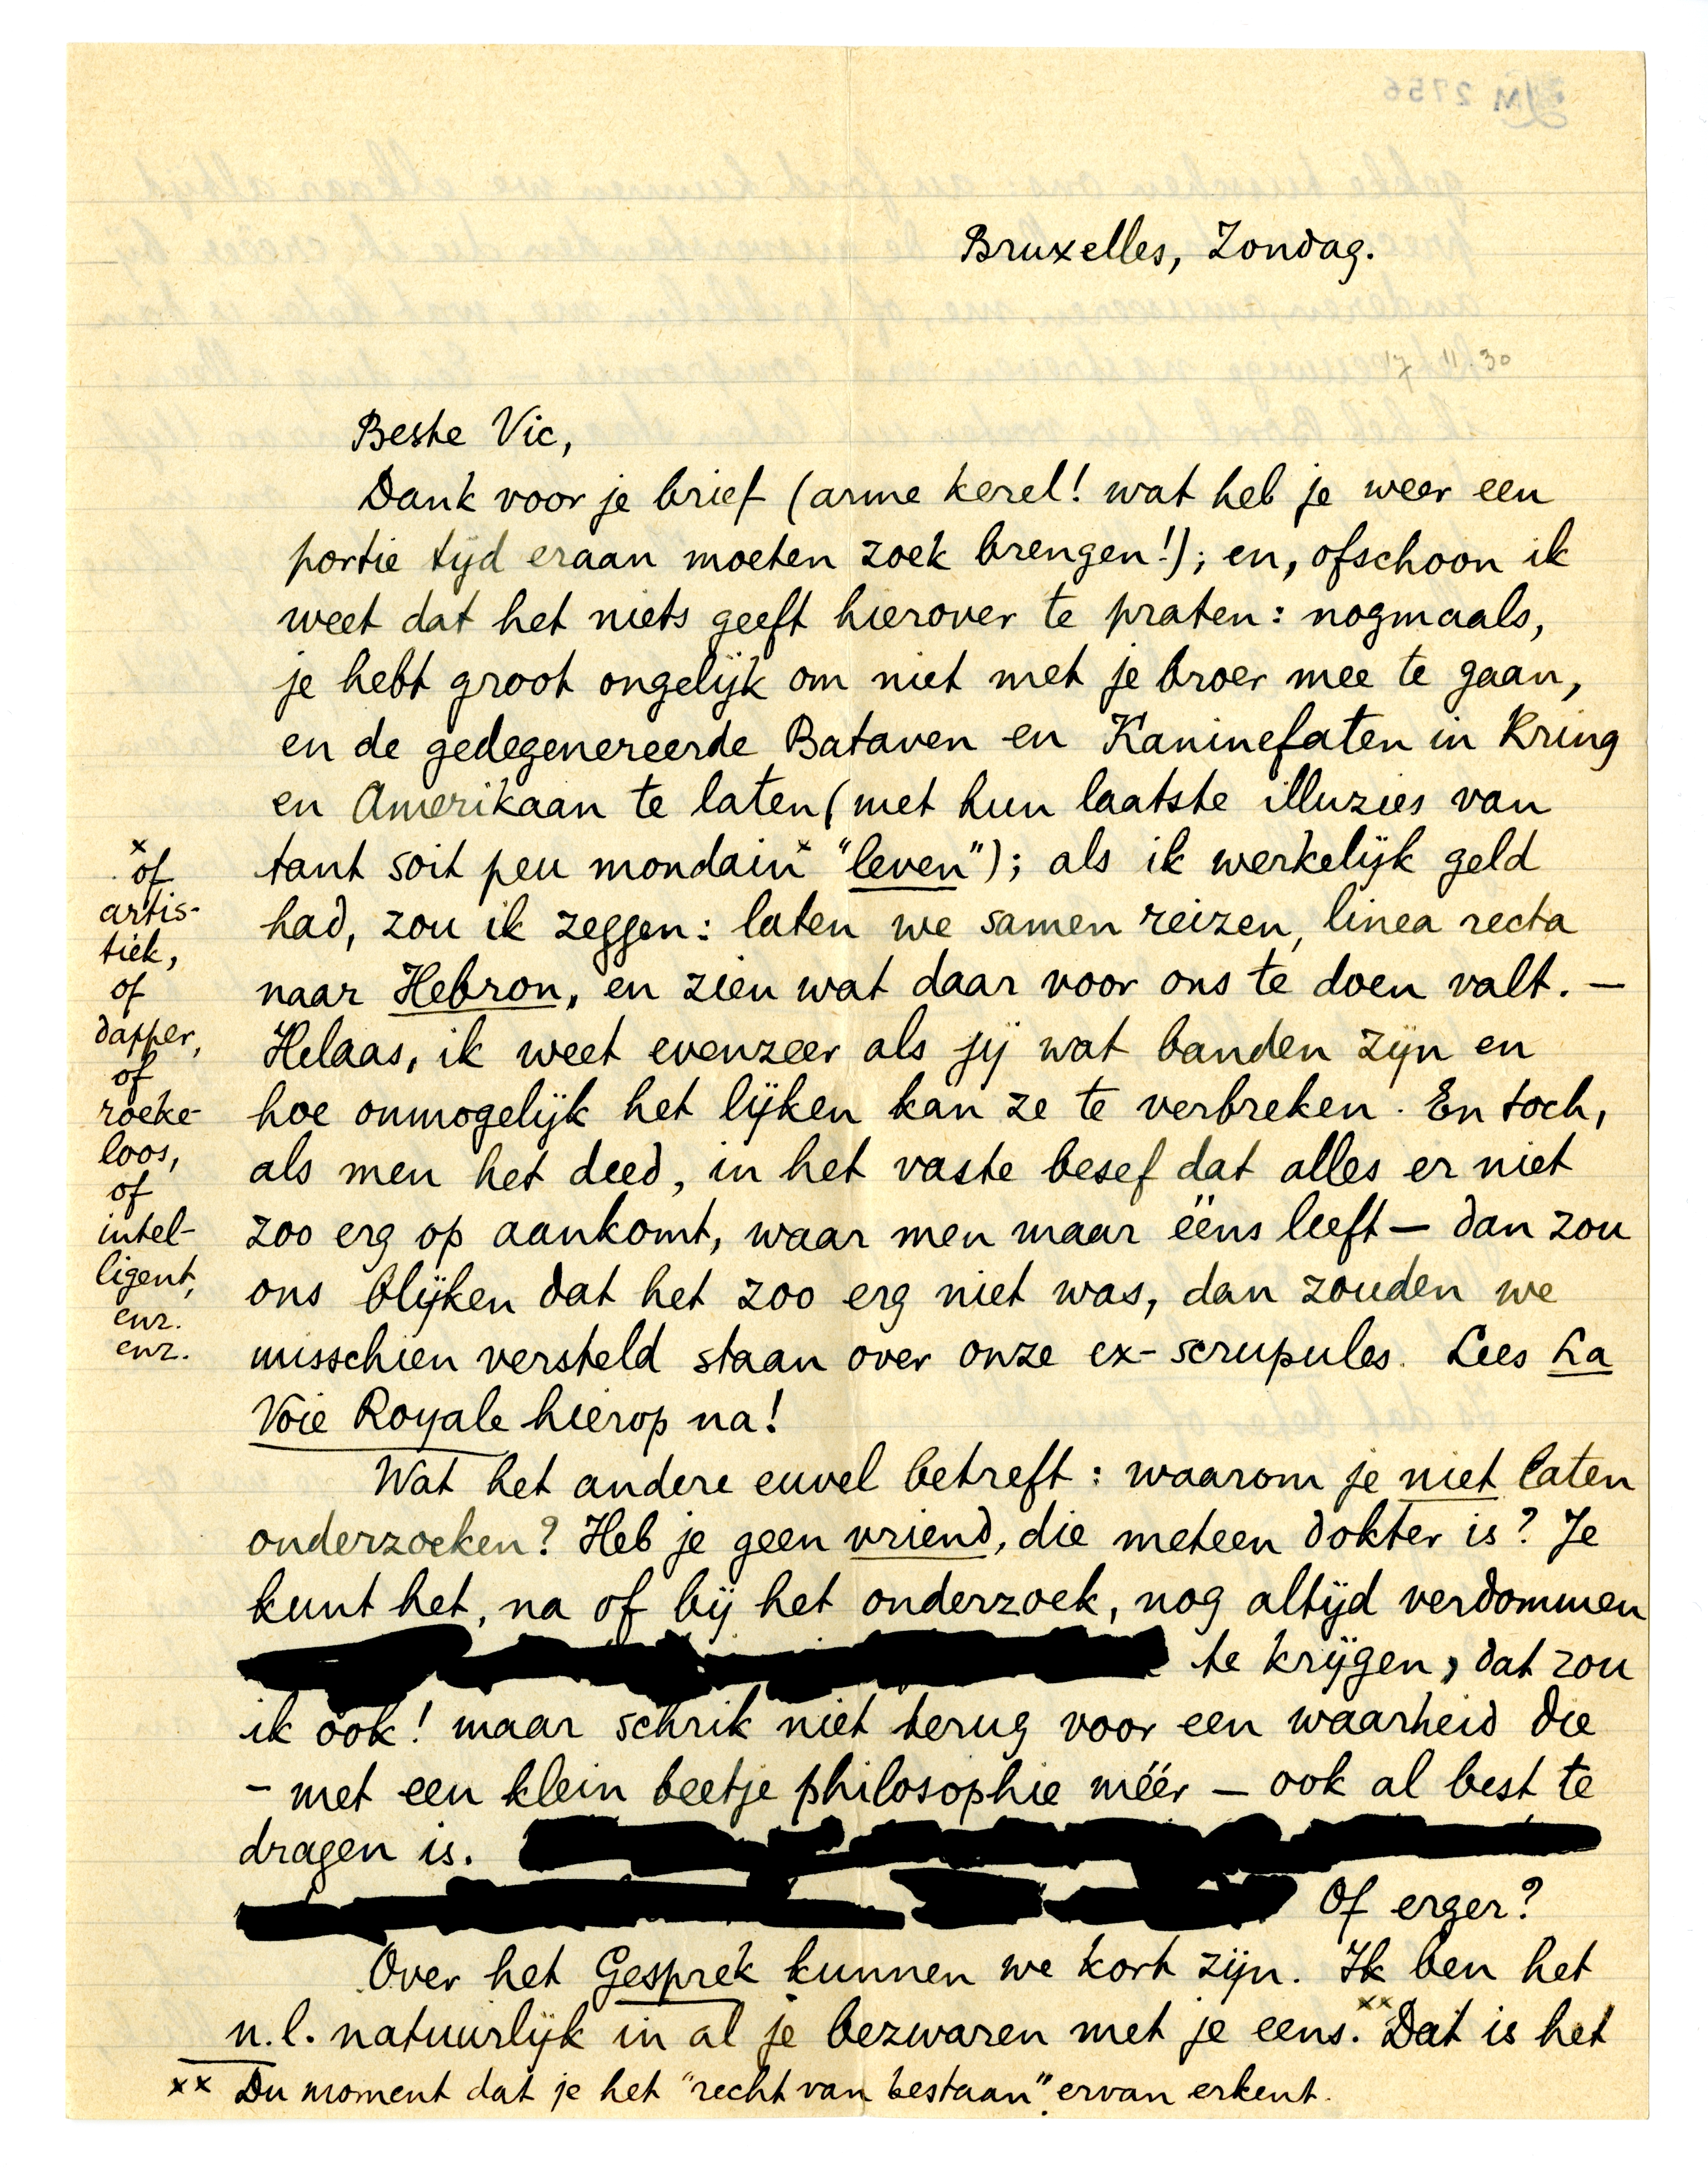 Bruxelles, Zondag.
17.11.30
Beste Vic,
Dank voor je brief (arme kerel! wat heb je weer een
portie tijd eraan moeten zoek brengen!); en, ofschoon ik
weet dat het niets geeft hierover te praten: nogmaals,
je hebt groot ongelijk om niet met je broer mee te gaan,
en de gedegenereerde Bataven en Kaninefaten in Kring
en Amerikaan te laten (met hun laatste illuzies van
tant soit peu mondain x "leven"); als ik werkelijk geld
had, zou ik zeggen: laten we samen reizen, linea recta
naar Hebron, en zien wat daar voor ons te doen valt. —
Helaas, ik weet evenzeer als jij wat banden zijn en
hoe onmogelijk het lijken kan ze te verbreken. En toch,
als men het deed, in het vaste besef dat alles er niet
zoo erg op aankomt, waar men maar ééns leeft — dan zou
ons blijken dat het zoo erg niet was, dan zouden we
misschien versteld staan over onze ex-scrupules. Lees La
Voie Royale hierop na!
x of
artis-
tiek,
of
dapper,
of
roeke-
loos,
of
intel-
ligent,
enz.
enz.
Wat het andere euvel betreft: waarom je niet laten
onderzoeken? Heb je geen vriend, die meteen dokter is? Je
kunt het, na of bij het onderzoek, nog altijd verdommen
te krijgen, dat zou
ik óók! maar schrik niet terug voor een waarheid die
– met een klein beetje philosophie méér – ook al best te
dragen is.
Of erger?
Over het Gesprek kunnen we kort zijn. Ik ben het
n.l. natuurlijk in al je bezwaren met je eens. xx Dat is het
xx Du moment dat je het "recht van bestaan" ervan erkent.